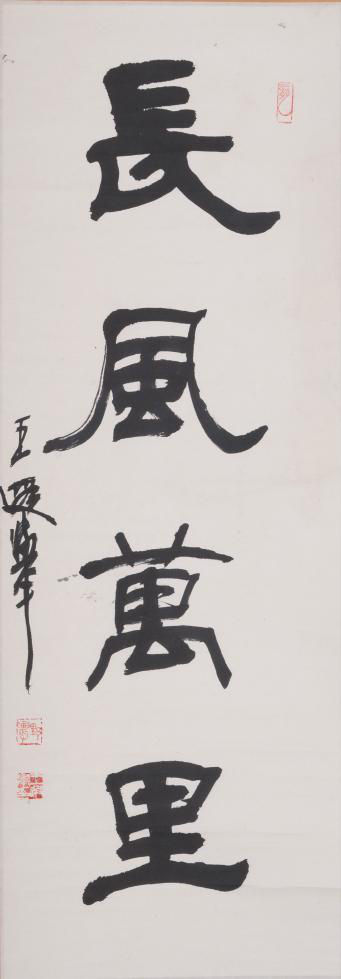 長風萬里
王遐舉